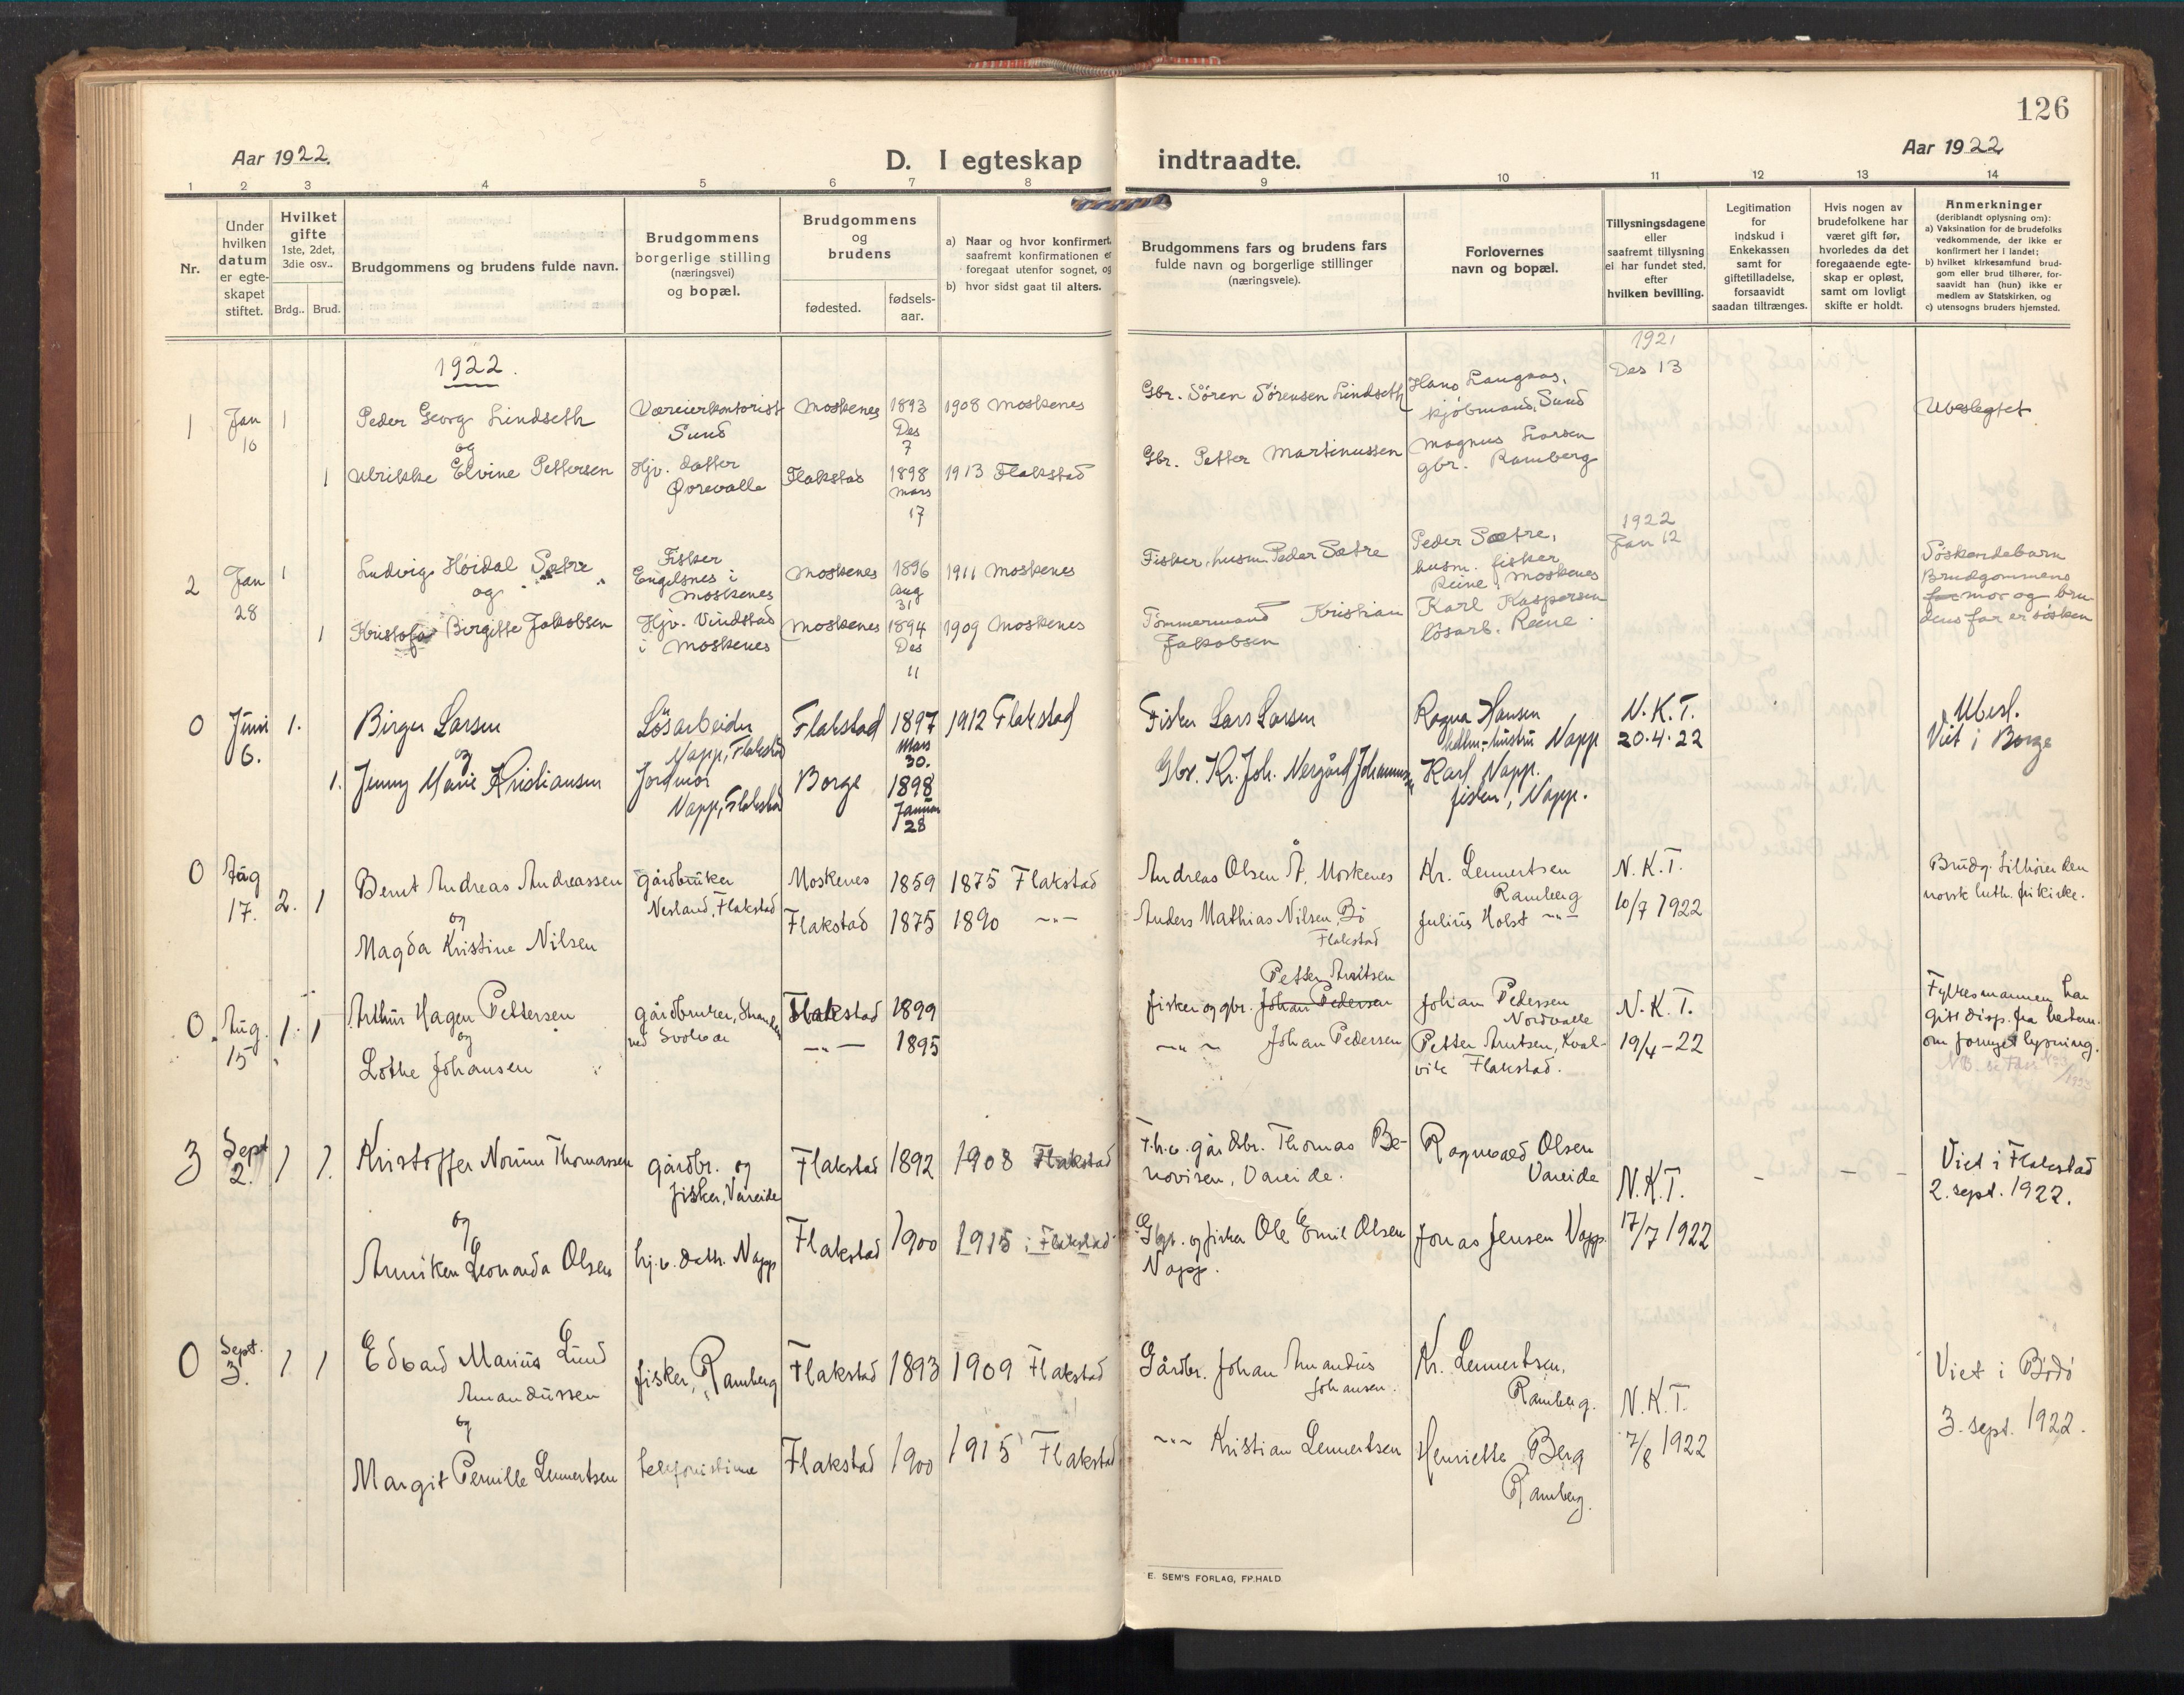 126
Aar 1922.
D. I egteskap indtraadte.
Aar 1922
1 2 3 4 5 6 7 8 9 10 11 12 13 14
Nr.
Under
hvilken
datum
er egte-
skapet
stiftet.
Hvilket
gifte
1ste, 2det,
3die osv..
Brdg.. Brud.
Brudgommens og brudens fulde navn.
Brudgommens
borgerlige stilling
(næringsvei)
og bopæl.
Brudgommens
og
brudens
fødested.
fødsels-
aar.
a) Naar og hvor konfirmert,
saafremt konfirmationen er
foregaat utenfor sognet, og
b) hvor sidst gaat til alters.
Brudgommens fars og brudens fars
fulde navn og borgerlige stillinger
(næringsveie).
Forlovernes
navn og bopæl.
Tillysningsdagene
eller
saafremt tillysning
ei har fundet sted,
efter
hvilken bevilling.
Legitimation
for
indskud i
Enkekassen
samt for
giftetilladelse,
forsaavidt
saadan tiltrænges.
Hvis nogen av
brudefolkene har
været gift før,
hvorledes da det
foregaaende egte-
skap er opløst,
samt om lovligt
skifte er holdt.
Anmerkninger
(deriblandt oplysning om):
a) Vaksination for de brudefolks
vedkommende, der ikke er
konfirmert her i landet;
b) hvilket kirkesamfund brud-
gom eller brud tilhører, for-
saavidt han (hun) ikke er
medlem av Statskirken, og
c) utensogns bruders hjemsted.
1922.
1
Jan
10
1
Peder Georg Lindseth
og
1
Ulrikke Elvine Pettersen
Væreierkontorist
Sund
Hjv. datter
Ørevalle
Moskenes
Flakstad
1893
Des
7
1898
Mars
17
1908 Moskenes
1913 Flakstad
Gbr. Sören Sörensen Lindseth
Gbr. Petter Martinussen
Hans Langaas,
kjöbmand, Sund
Magnus Larsen
gbr. Ramberg
1921
Des 13
Ubeslegtet
2
Jan
28
1
Ludvig Höidal Sætre
og
1
Birgitte Jakobsen
Fisker
Engelsnes i
Moskenes
Hjv. Vindstad
i Moskenes
Moskenes
Moskenes
1896
Aug
31
1894
Des
11
1911 Moskenes
1909 Moskenes
Fisker, husm. Peder Sætre
Tömmermand Kristian
Jakobsen
Peder Sætre,
husm. fisker
Reine, Moskenes
Karl Kaspersen
lösarb. Reine.
1922
Jan 12
Söskendebarn
Brudgommens
mor og bru
dens far er sösken
0
Juni
6.
1.
Birger Larsen
og
1.
Jenny Marie Kristiansen
Lösarbeider
Napp, Flakstad
Jordmor
Napp, Flakstad
Flakstad
Borge
1897
Mars
30.
1898
Januar
28
1912 Flakstad
Fisker Lars Larsen
Gbr. Kr. Joh. Nergård Johannesen
Ragna Hansen
Napp
Karl Napp.
fisker, Napp.
N.K.T.
20.4.22
Ubesl.
Viet i Borge
0
Aug
17.
2. 1
Bernt Andreas Andreassen
og
Magda Kristine Nilsen
gårdbruker
Nesland, Flakstad
Moskenes
Flakstad
1859
1875
1875 Flakstad
1890 -"-
Andreas Olsen Å, Moskenes
Anders Mathias Nilsen, Bö
Flakstad
Kr. Lennertsen
Ramberg
Julius Holst -"-
N.K.T.
10/7 1922
Brudg. tilhörer den
norsk luth. frikirke.
0.
Aug.
15
1. 1
Arthur Hagen Pettersen
og
Lothe Johansen
gårdbruker,
ved Svolvær
Flakstad
-"-
1899
1895
Petter Arntsen
fisker og gbr. Johan Pedersen
-"- Johan Pedersen
Johan Pedersen
Nordvalle
Petter Arntsen, Kval-
vik Flakstad.
N.K.T.
19/4-22
Fylkesmannen har
gitt disp. fra bestem.
om fornyet lysning.
3
Sept
2.
1 1.
Kristoffer Thomassen
og
Anniken Leonarda Olsen
gårdbr. og
fisker, Vareide
hj.v. datt. Napp
Flakstad
Flakstad
1892
1900
1908 Flakstad
1915 i Flakstad
F.h.v. gårdbr. Thomas Be-
novisen, Vareide.
Gbr. og fisker Ole Emil Olsen
Napp.
Ragnvald Olsen
Vareide
Jonas Jensen Napp.
N.K.T.
17/7 1922
- - -
Viet i Flakstad
2. sept. 1922.
0
Sept.
3.
1 1
Edvard Marius Lund
Amandussen
og
Margit Pernille Lennertsen
fisker, Ramberg
telefonistinne
Flakstad
Flakstad
1893
1900
1909 Flakstad
1915 Flakstad
Gårdbr. Johan Amandus
Johansen.
-"- Kristian Lennertsen
Kr. Lennertsen,
Ramberg.
Henriette Berg
Ramberg.
N.K.T.
7/8 1922
Viet i Bodö
3. sept. 1922.
E. SEM'S FORLAG, FR.HALD